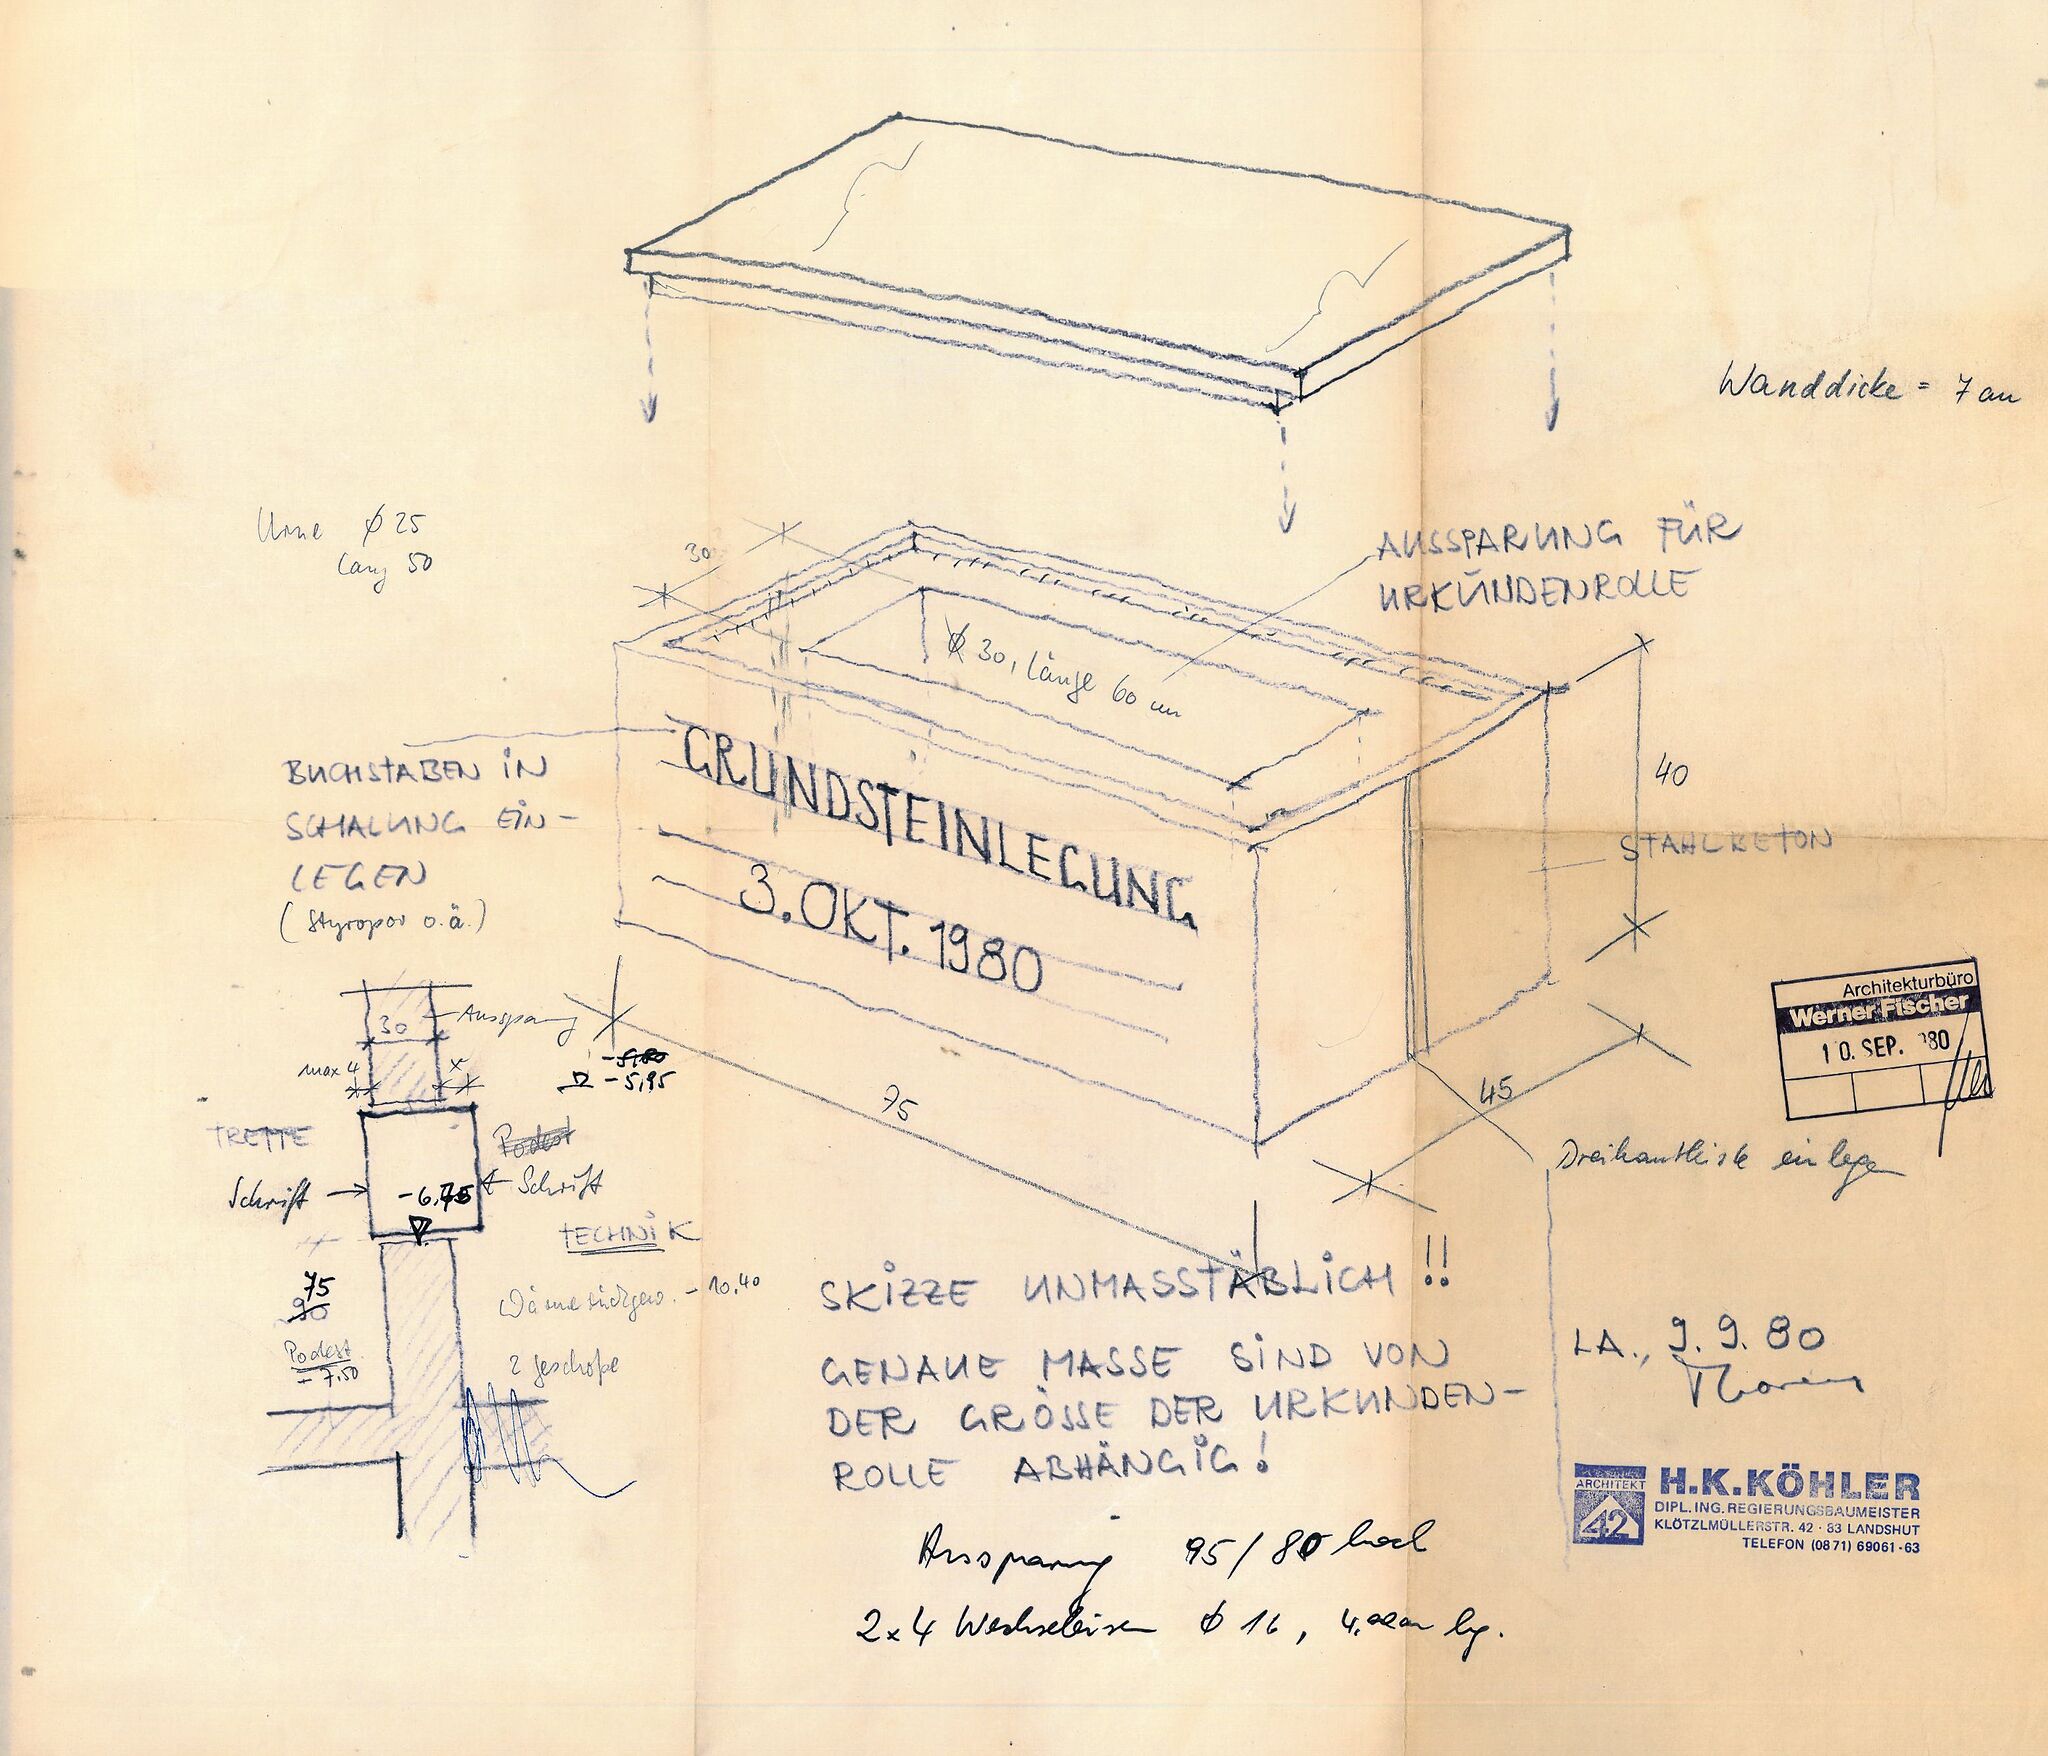 Wanddicke = 7 cm
Urne Ø 25
lang 50
30
AUSSPARUNG FÜR
URKUNDENROLLE
Ø 30, Länge 60 cm
40
STAHLBETON
BUCHSTABEN IN
SCHALUNG EIN-
LEGEN
(Styropor o.ä.)
GRUNDSTEINLEGUNG
3. OKT. 1980
30
Aussparung
max 4
x
-5,80
-5,95
75
45
Architekturbüro
Werner Fischer
10. SEP. 1980
Dreikantleiste einlegen
TREPPE
Podest
Schrift
-6.75
Schrift
TECHNIK
75
90
Podest
-7.50
Wärmerückgew. -10.40
2 Geschoße
SKIZZE UNMASSTÄBLICH !!
GENAUE MASSE SIND VON
DER GRÖSSE DER URKUNDEN-
ROLLE ABHÄNGIG!
LA., 9. 9. 80
ARCHITEKT
42
H.K.KÖHLER
DIPL. ING. REGIERUNGSBAUMEISTER
KLÖTZLMÜLLERSTR. 42 · 83 LANDSHUT
TELEFON (0871) 69061-63
Aussparung 95/80 hoch
2x4 Wechseleisen Ø 16, lg.